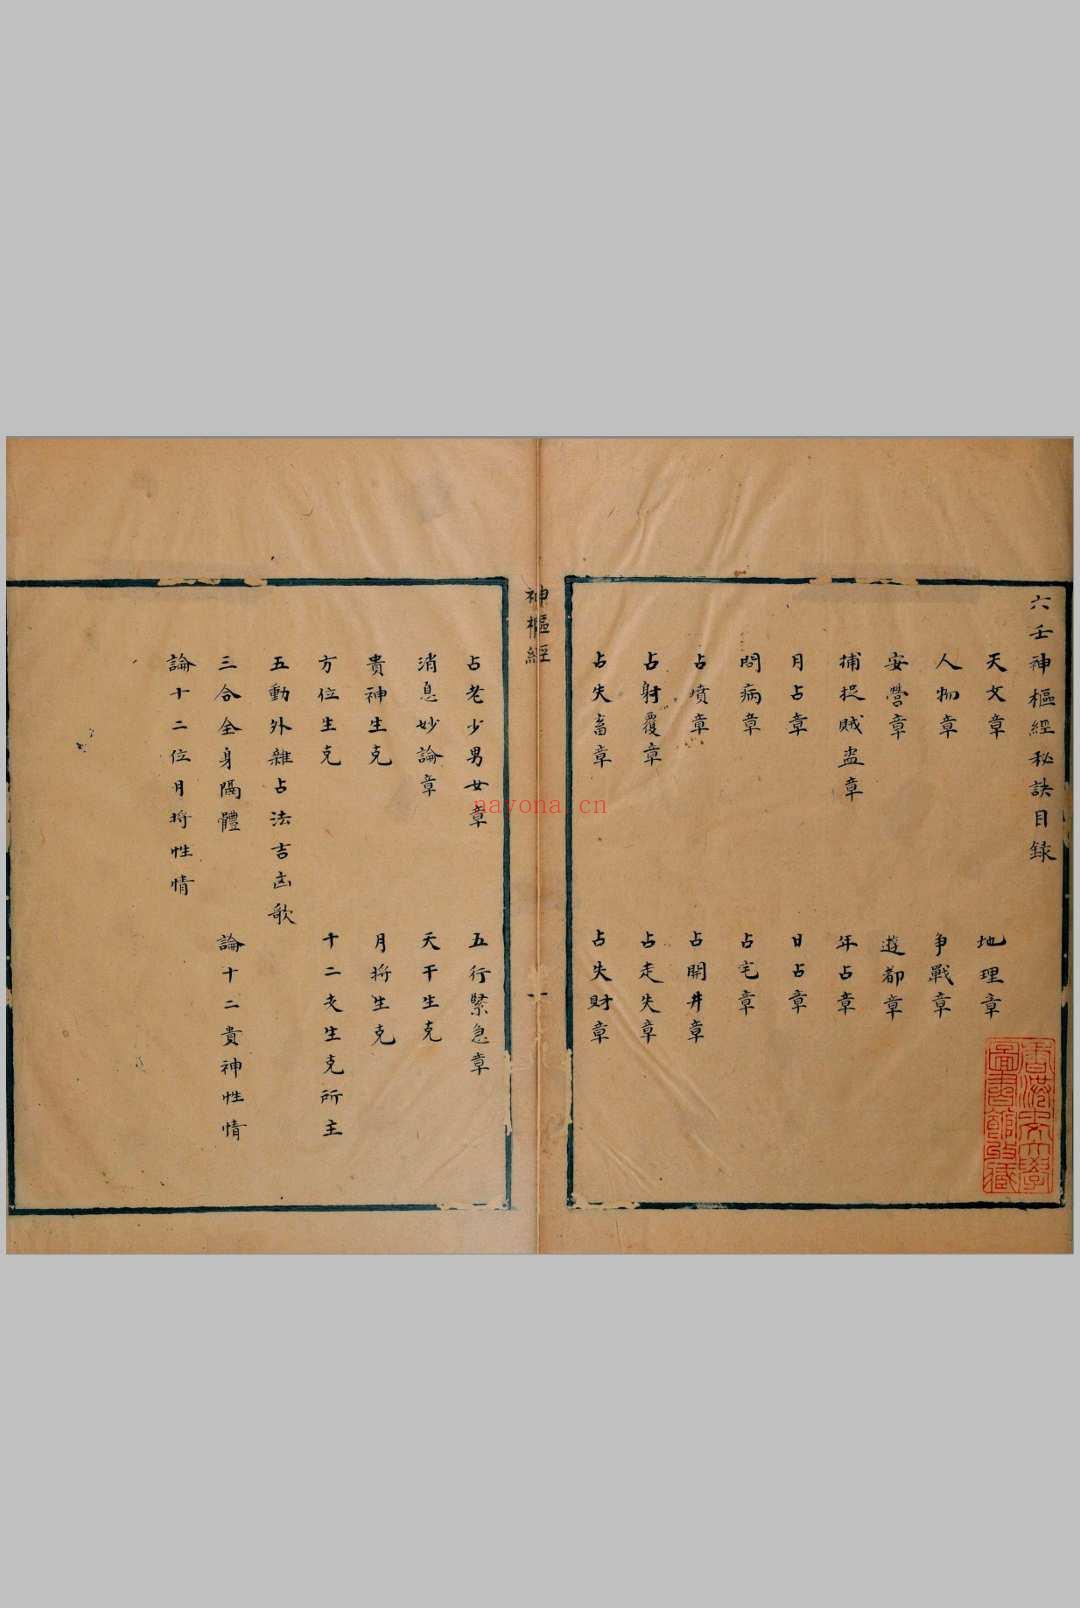 六壬神樞經秘訣目録
天文章 地理章
人物章 爭戰章
安營章 遊都章
捕捉贼盗章 年占章
月占章 日占章
問病章 占宅章
占墳章 占開井章
占射覆章 占走失章
占失畜章 占失財章
神樞經
一
占老少男女章 五行緊急章
消息妙論章 天干生克
貴神生克 月將生克
方位生克 十二支生克所主
五動外雜占法吉凶歌
三合全身隔體 論十二貴神性情
論十二位月将性情
香港中文大學
圖書館所藏
nayona.cn